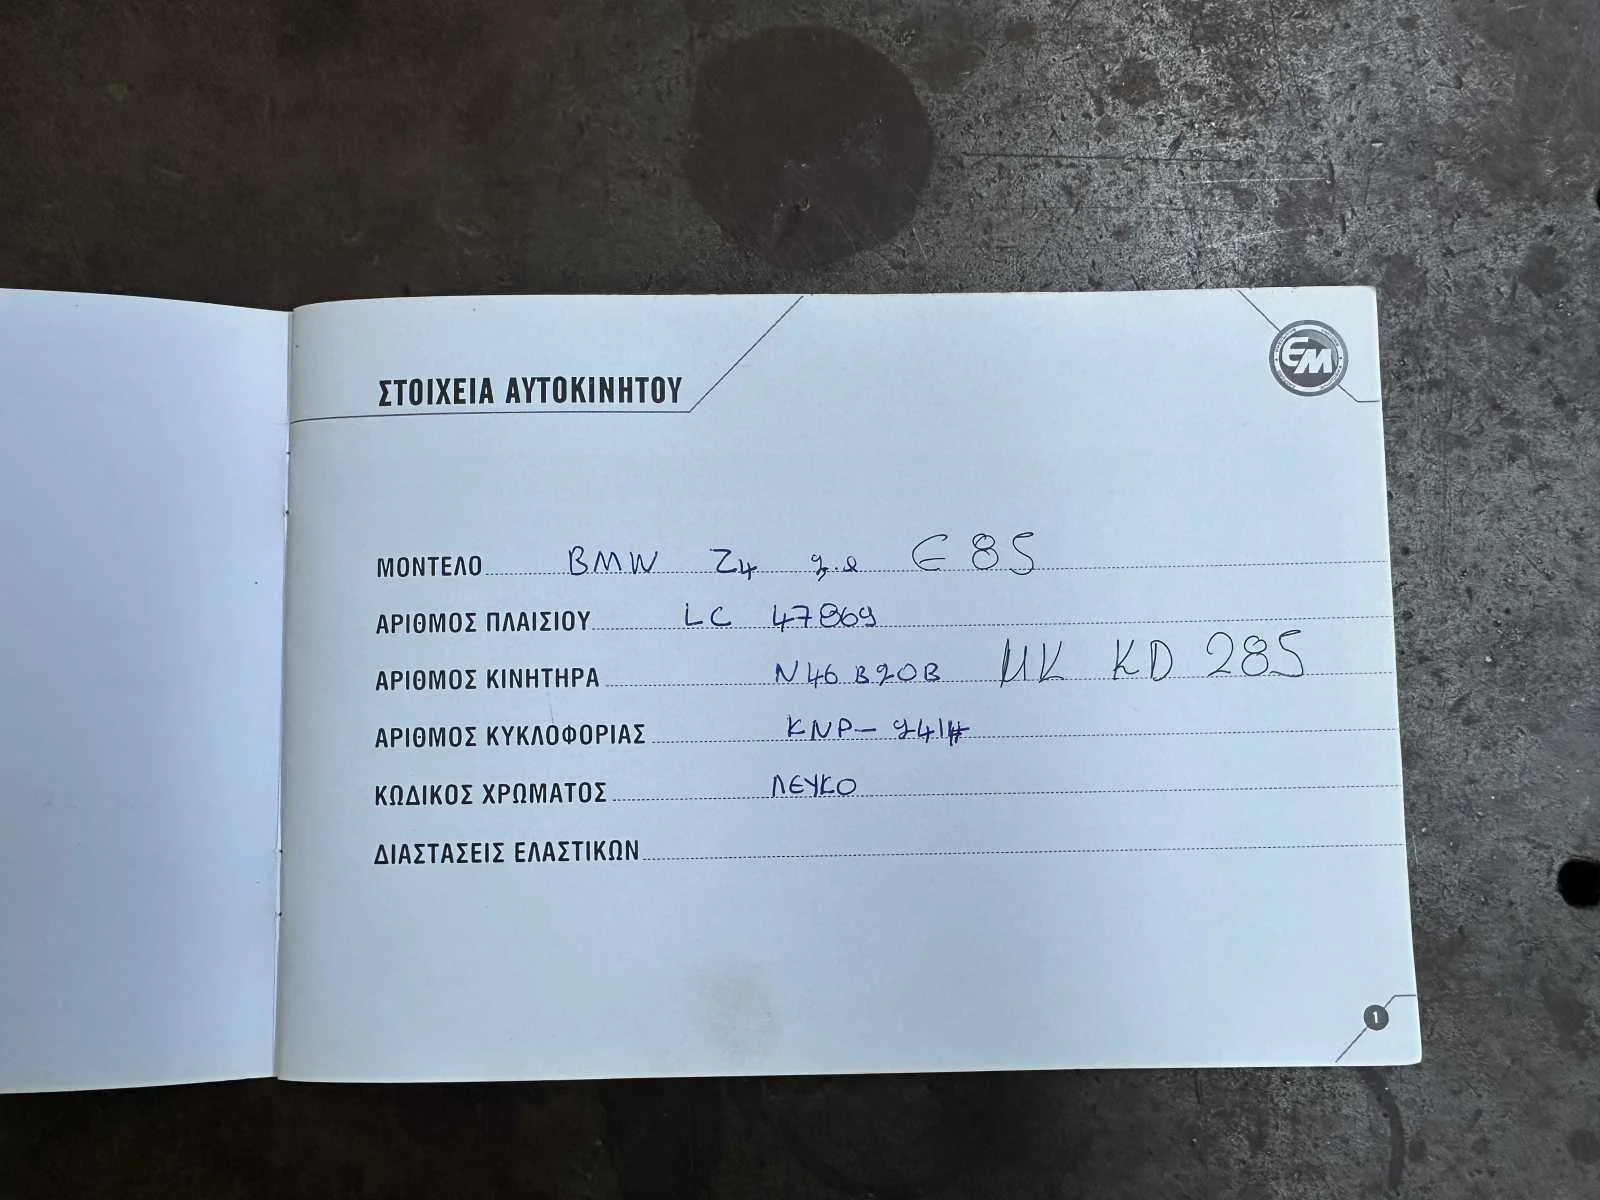 ΣΤΟΙΧΕΙΑ ΑΥΤΟΚΙΝΗΤΟΥ
EM
ΜΟΝΤΕΛΟ BMW Z4 2.2 E85
ΑΡΙΘΜΟΣ ΠΛΑΙΣΙΟΥ LC 47869
ΑΡΙΘΜΟΣ ΚΙΝΗΤΗΡΑ N46 B20B MK KD 285
ΑΡΙΘΜΟΣ ΚΥΚΛΟΦΟΡΙΑΣ KNP-
ΚΩΔΙΚΟΣ ΧΡΩΜΑΤΟΣ ΛΕΥΚΟ
ΔΙΑΣΤΑΣΕΙΣ ΕΛΑΣΤΙΚΩΝ
1